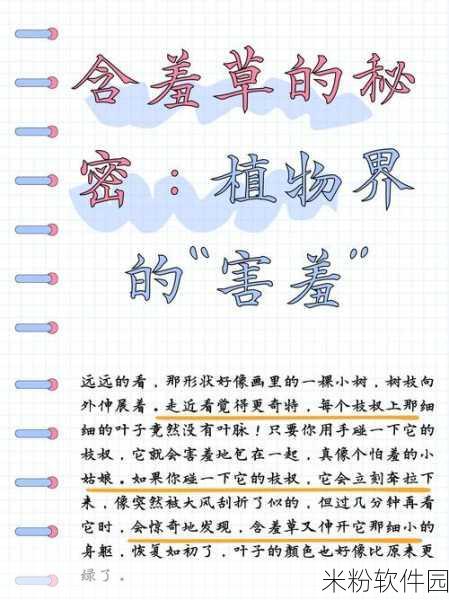 含羞草的秘
密：植物界
的“害羞”
远远的看，那形状好像画里的一棵小树，树枝向
外伸展着。走近看觉得更奇特，每个枝杈上那细
细的叶子竟然没有叶脉！只要你用手碰一下它的
枝杈，它就会害羞地包在一起，真像个怕羞的小
姑娘。如果你碰一下它的枝杈，它会立刻奔拉下
来，像突然被大风刮折了似的，但过几分钟再看
它时，会惊奇地发现，含羞草又伸开它那细小的
身躯，恢复如初了，叶子的颜色也好像比原来更
绿了。
米粉软件园